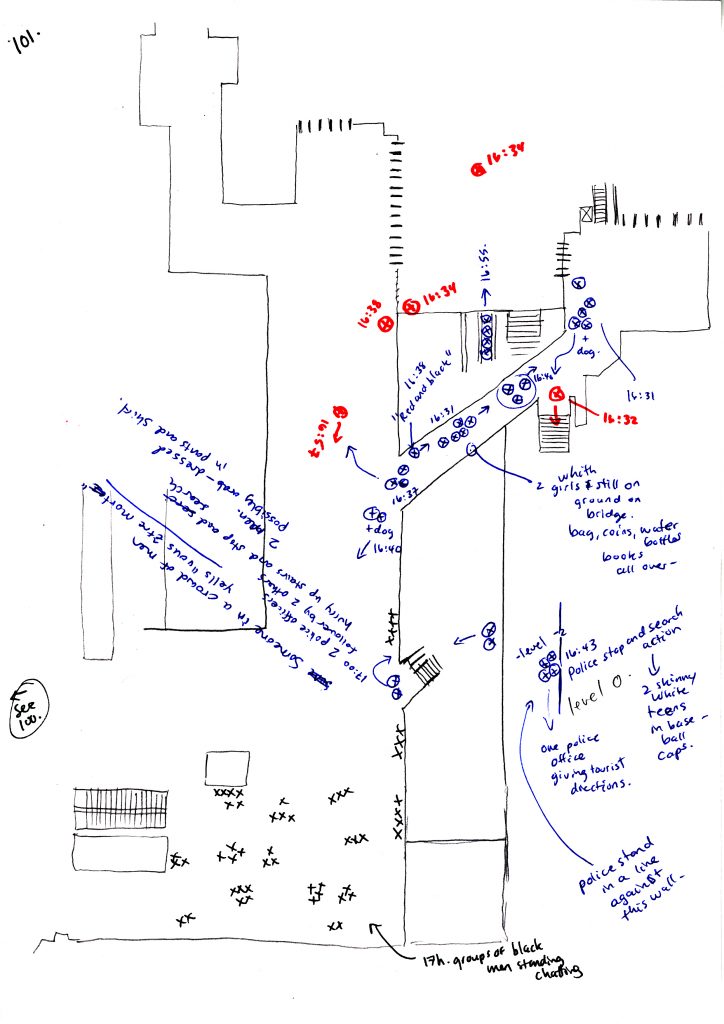 101.
16:34
16:55.
16:34
16:38
16:38
"Red and black"
16:37
16:40
+
dog.
16:31
16:32
16:57
16:37
+dog
16:40
2 whith
girls & still on
ground on
bridge.
bag, coins, water
bottles
books
all over-
2 men.
possibly arab - dressed
in pants and shirt.
17:00 2 police officers
followed by 2 others
hurry up stairs and stop and search
Someone in a crowd of men
yells "
-level -2
16:43
Police stop and search
action
level 0.
2 skinny
white
teens
in base-
ball
caps.
one police
office
giving tourist
directions.
police stand
in a line
against
this wall-
See
100.
17h. groups of black
men standing
chatting